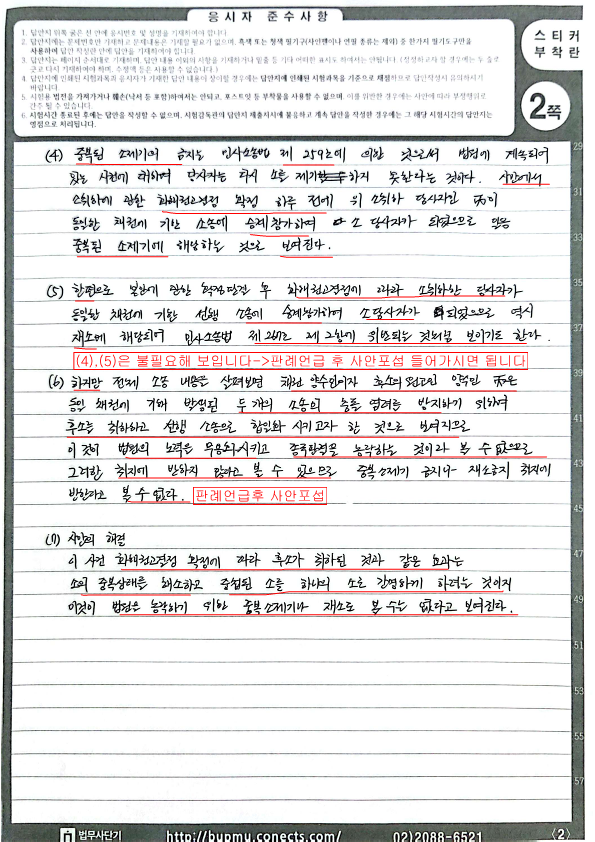 응시자 준수사항
1. 답안지 위쪽 굵은 선 안에 응시번호 및 성명을 기재하여야 합니다.
2. 답안지에는 문제번호만 기재하고 문제내용은 기재할 필요가 없으며, 흑색 또는 청색 필기구(사인펜이나 연필 종류는 제외) 중 한가지 필기도구만을
사용하여 답안 작성란 안에 답안을 기재하여야 합니다.
3. 답안지는 페이지 순서대로 기재하며, 답안 내용 이외의 사항을 기재하거나 밑줄 등 기타 어떠한 표시도 하여서는 안됩니다. (정정하고자 할 경우에는 두 줄로
긋고 다시 기재하여야 하며, 수정액 등은 사용할 수 없습니다.)
4. 답안지에 인쇄된 시험과목과 응시자가 기재한 답안 내용이 상이할 경우에는 답안지에 인쇄된 시험과목을 기준으로 채점하므로 답안작성시 유의하시기
바랍니다.
5. 시험용 법전을 가져가거나 훼손(낙서 등 포함)하여서는 안되고, 포스트잇 등 부착물을 사용할 수 없으며, 이를 위반한 경우에는 사안에 따라 부정행위로
간주 될 수 있습니다.
6. 시험시간 종료된 후에는 답안을 작성할 수 없으며, 시험감독관의 답안지 제출지시에 불응하고 계속 답안을 작성한 경우에는 그 해당 시험시간의 답안지는
영점으로 처리됩니다.
스티커
부착란
2쪽
(4) 중복된 소제기의 금지는 민사소송법 제 259조에 의한 것으로써 법원에 계속되어
있는 사건에 대하여 당사자는 다시 소를 제기하지 못한다는 것이다. 사안에서
소취하에 관한 화해권고결정 확정 하루 전에 위 소취하 당사자인 丙이
동일한 채권에 기한 소송에 승계참가하여 소 당사자가 되었으므로 일응
중복된 소제기에 해당하는 것으로 보여진다.
(5) 한편으로 본안에 관한 확정판결 후 화해권고결정에 따라 소취하한 당사자가
동일한 채권에 기한 선행 소송에 승계참가하여 소당사자가 되었으므로 역시
재소에 해당되어 민사소송법 제 267조 제 2항에 위반되는 것처럼 보이기도 한다.
(4),(5)은 불필요해 보입니다->판례언급 후 사안포섭 들어가시면 됩니다
(6) 하지만 전체 소송 내용을 살펴보면 채권 양수인이자 후소의 원고인 丙은
동일 채권에 기해 발생된 두 개의 소송의 충돌 염려를 방지하기 위하여
후소를 취하하고 선행 소송으로 합일화 시키고자 한 것으로 보여지므로
이 것이 법원의 노력을 무용화시키고 종국판결을 농락하는 것이라 볼 수 없으므로
그러한 취지에 반하지 않다고 볼 수 있으므로 중복소제기 금지나 재소금지 취지에
반한다고 볼 수 없다.
판례언급후 사안포섭
(7) 사안의 해결
이 사건 화해권고결정 확정에 따라 후소가 취하된 것과 같은 효과는
소의 중복상태를 해소하고 중첩된 소를 하나의 소로 간명하기 하려는 것이지
이것이 법원을 농락하기 위한 중복소제기나 재소로 볼 수는 없다고 보여진다.
29
31
33
35
37
39
41
43
45
47
49
51
53
55
57
법무사단기
http://bupmu.conects.com/
02)2088-6521
〈2〉